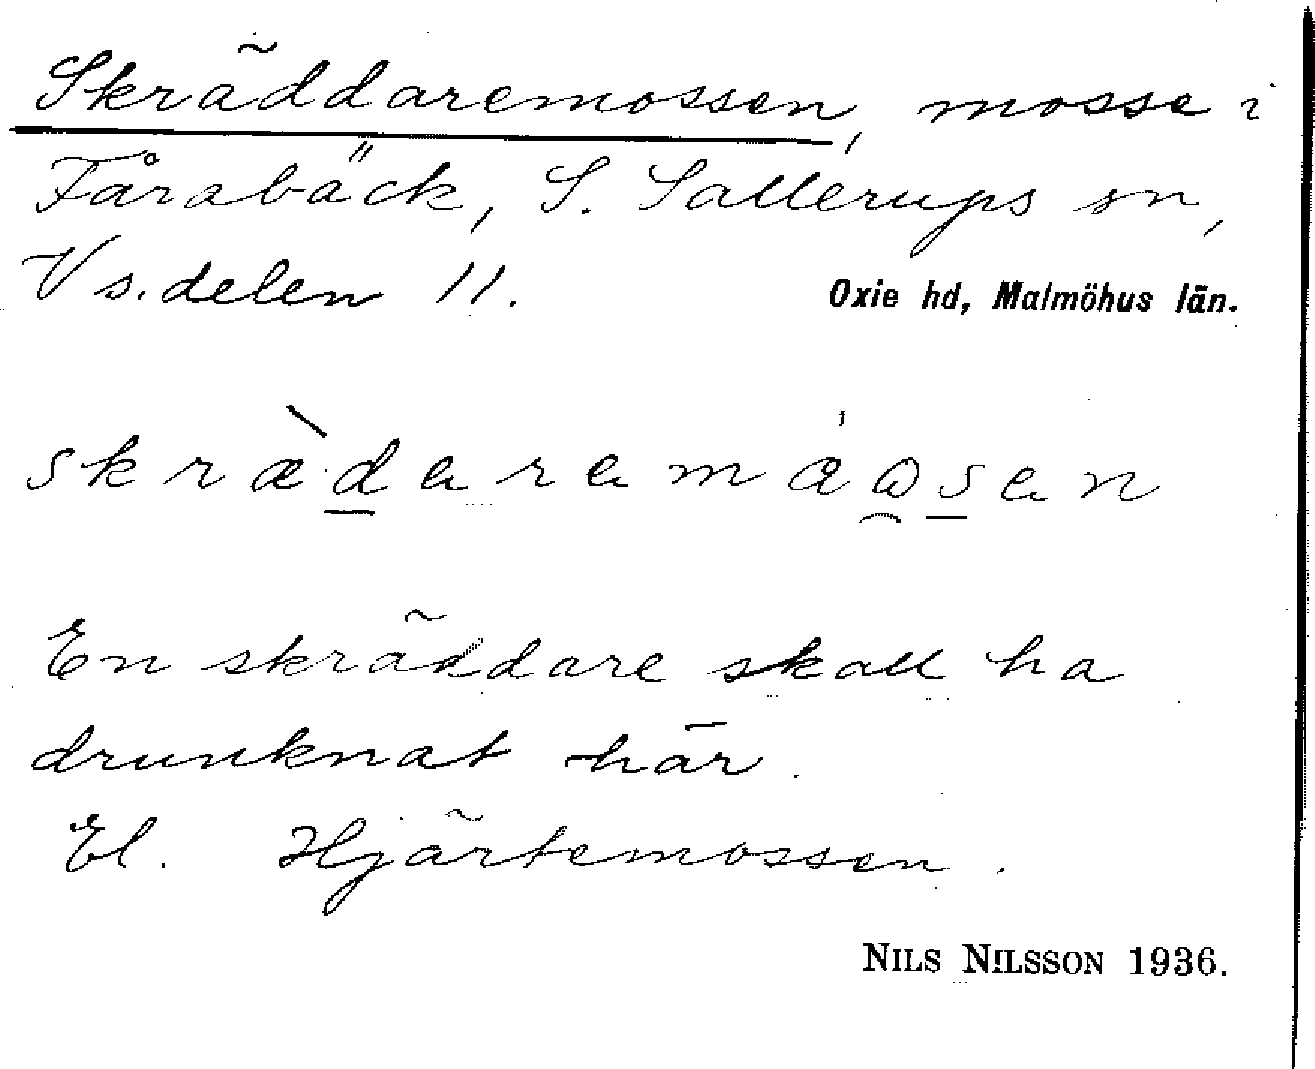 Skräddaremossen, mosse i
Fårabäck, S. Sallerups sn,
V s. delen 11. Oxie hd, Malmöhus län.
skræ̀d̲aremáo̯s̲an
En skräddare skall ha
drunknat här.
El. Hjärtemossen.
NILS NILSSON 1936.